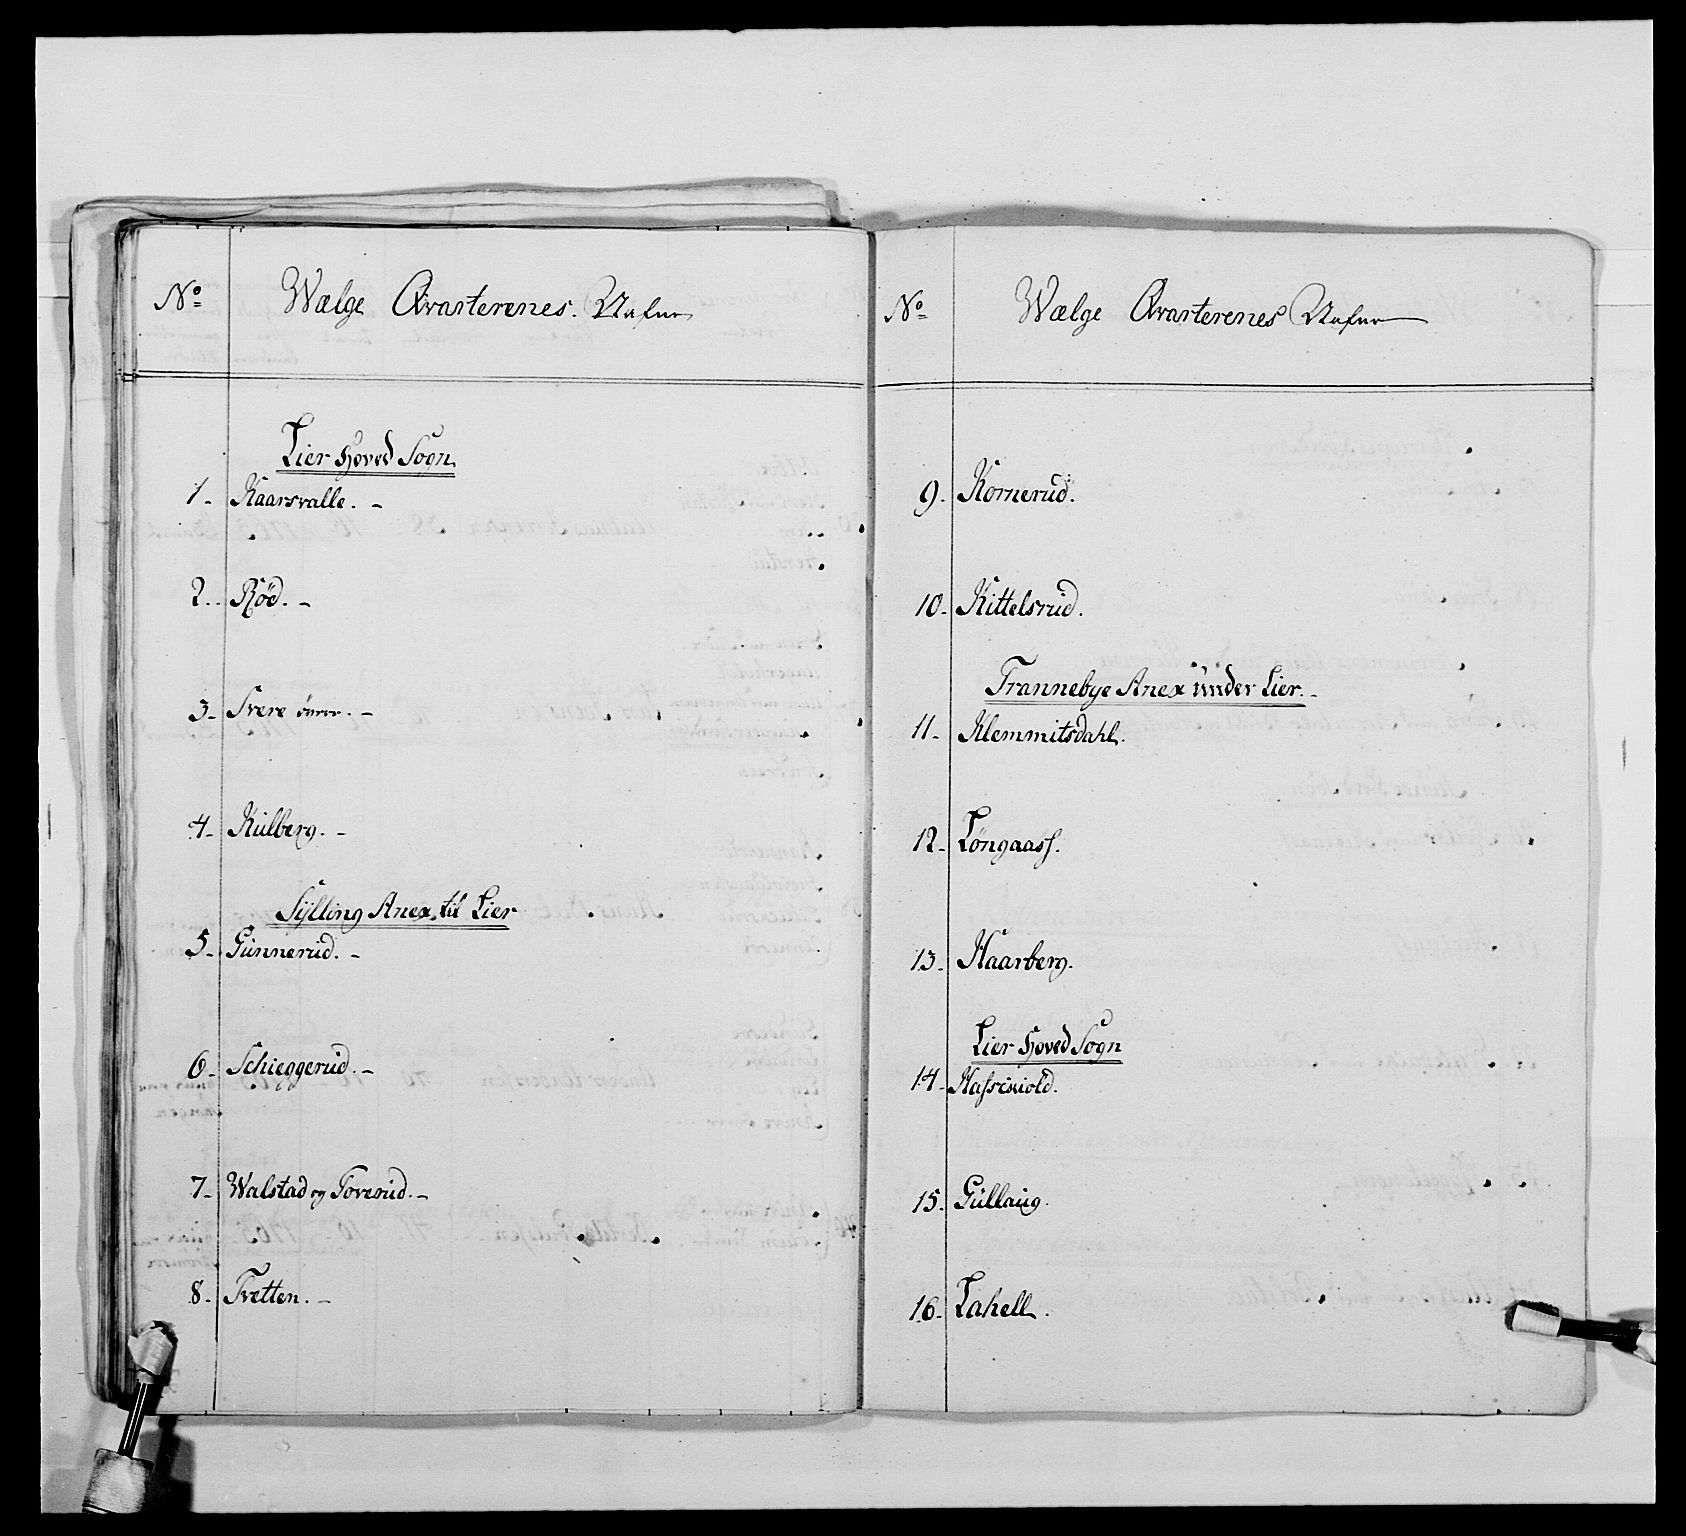 No Wælge Qvarterenes Nafne
Lier Hoved Sogn
1. Kaarsvalle.
2. Röd.
3. Svere övre.
4. Kulberg.
Sylling Anex til Lier
5. Gunnerud.
6. Schieggerud.
7. Walstad og Toverud.
8. Tvetten.
No Wælge Qvarterenes Nafne
9. Kornerud.
10. Kittelsrud.
Trannebye Anex under Lier.
11. Klemmitsdahl.
12. Löngaass.
13. Haarberg.
Lier Hoved Sogn
14.
15. Gullaug.
16. Lahell.